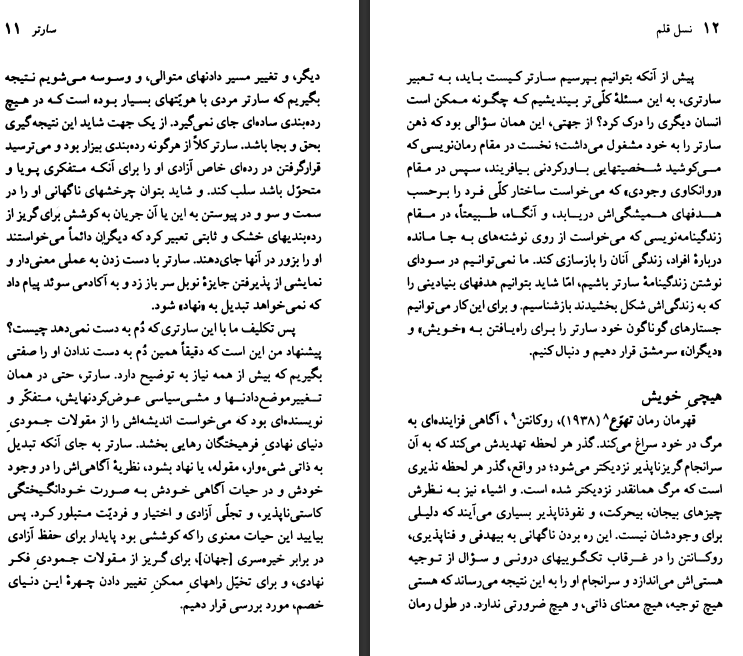 سارتر ۱۱
دیگر، و تغییر مسیر دادنهای متوالی، و وسوسه می‌شویم نتیجه
بگیریم که سارتر مردی با هویّتهای بسیار بوده است که در هیچ
رده‌بندی ساده‌ای جای نمی‌گیرد. از یک جهت شاید این نتیجه‌گیری
بحق و بجا باشد. سارتر کلاً از هرگونه رده‌بندی بیزار بود و می‌ترسید
قرارگرفتن در رده‌ای خاص آزادی او را برای آنکه متفکری پویا و
متحوّل باشد سلب کند. و شاید بتوان چرخشهای ناگهانی او را در
سمت و سو و در پیوستن به این یا آن جریان به کوشش برای گریز از
رده‌بندیهای خشک و ثابتی تعبیر کرد که دیگران دائماً می‌خواستند
او را بزور در آنها جای‌دهند. سارتر با دست زدن به عملی معنی‌دار و
نمایشی از پذیرفتن جایزهٔ نوبل سر باز زد و به آکادمی سوئد پیام داد
که نمی‌خواهد تبدیل به «نهاد» شود.
پس تکلیف ما با این سارتری که دُم به دست نمی‌دهد چیست؟
پیشنهاد من این است که دقیقاً همین دُم به دست ندادن او را صفتی
بگیریم که بیش از همه نیاز به توضیح دارد. سارتر، حتی در همان
تغییرموضع‌دادنها و مشی‌سیاسی عوض‌کردنهایش، متفکّر و
نویسنده‌ای بود که می‌خواست اندیشه‌اش را از مقولات جمودیِ
دنیای نهادیِ فرهیختگان رهایی بخشد. سارتر به جای آنکه تبدیل
به ذاتی شیءوار، مقوله، یا نهاد بشود، نظریهٔ آگاهی‌اش را در وجود
خودش و در حیات آگاهی خودش به صورت خودانگیختگی
کاستی‌ناپذیر، و تجلّی آزادی و اختیار و فردیّت متبلور کرد. پس
بیایید این حیات معنوی را که کوششی بود پایدار برای حفظ آزادی
در برابر خیره‌سری [جهان]، برای گریز از مقولات جمودیِ فکر
نهادی، و برای تخیّل راههایِ ممکنِ تغییر دادن چهرهٔ این دنیای
خصم، مورد بررسی قرار دهیم.
۱۲ نسل قلم
پیش از آنکه بتوانیم بپرسیم سارتر کیست باید، به تعبیر
سارتری، به این مسئلهٔ کلّی‌تر بیندیشیم که چگونه ممکن است
انسان دیگری را درک کرد؟ از جهتی، این همان سؤالی بود که ذهن
سارتر را به خود مشغول می‌داشت؛ نخست در مقام رمان‌نویسی که
می‌کوشید شخصیتهایی باورکردنی بیافریند، سپس در مقام
«روانکاوی وجودی» که می‌خواست ساختار کلّی فرد را برحسب
هدفهای همیشگی‌اش دریابد، و آنگاه، طبیعتاً، در مقام
زندگینامه‌نویسی که می‌خواست از روی نوشته‌های به جا مانده
دربارهٔ افراد، زندگی آنان را بازسازی کند. ما نمی‌توانیم در سودای
نوشتن زندگینامهٔ سارتر باشیم، امّا شاید بتوانیم هدفهای بنیادینی را
که به زندگی‌اش شکل بخشیدند بازشناسیم. و برای این کار می‌توانیم
جستارهای گوناگون خود سارتر را برای راه‌یافتن به «خویش» و
«دیگران» سرمشق قرار دهیم و دنبال کنیم.
هیچیِ خویش
قهرمان رمان تهوّع۸ (۱۹۳۸)، روکانتن۹، آگاهی فزاینده‌ای به
مرگ در خود سراغ می‌کند. گذر هر لحظه تهدیدش می‌کند که به آن
سرانجام گریزناپذیر نزدیکتر می‌شود؛ در واقع، گذر هر لحظه نذیری
است که مرگ همانقدر نزدیکتر شده است. و اشیاء نیز به نظرش
چیزهای بیجان، بیحرکت، و نفوذناپذیر بسیاری می‌آیند که دلیلی
برای وجودشان نیست. این ره بردن ناگهانی به بیهدفی و فناپذیری،
روکانتن را در غرقاب تک‌گوییهای درونی و سؤال از توجیه
هستی‌اش می‌اندازد و سرانجام او را به این نتیجه می‌رساند که هستی
هیچ توجیه، هیچ معنای ذاتی، و هیچ ضرورتی ندارد. در طول رمان